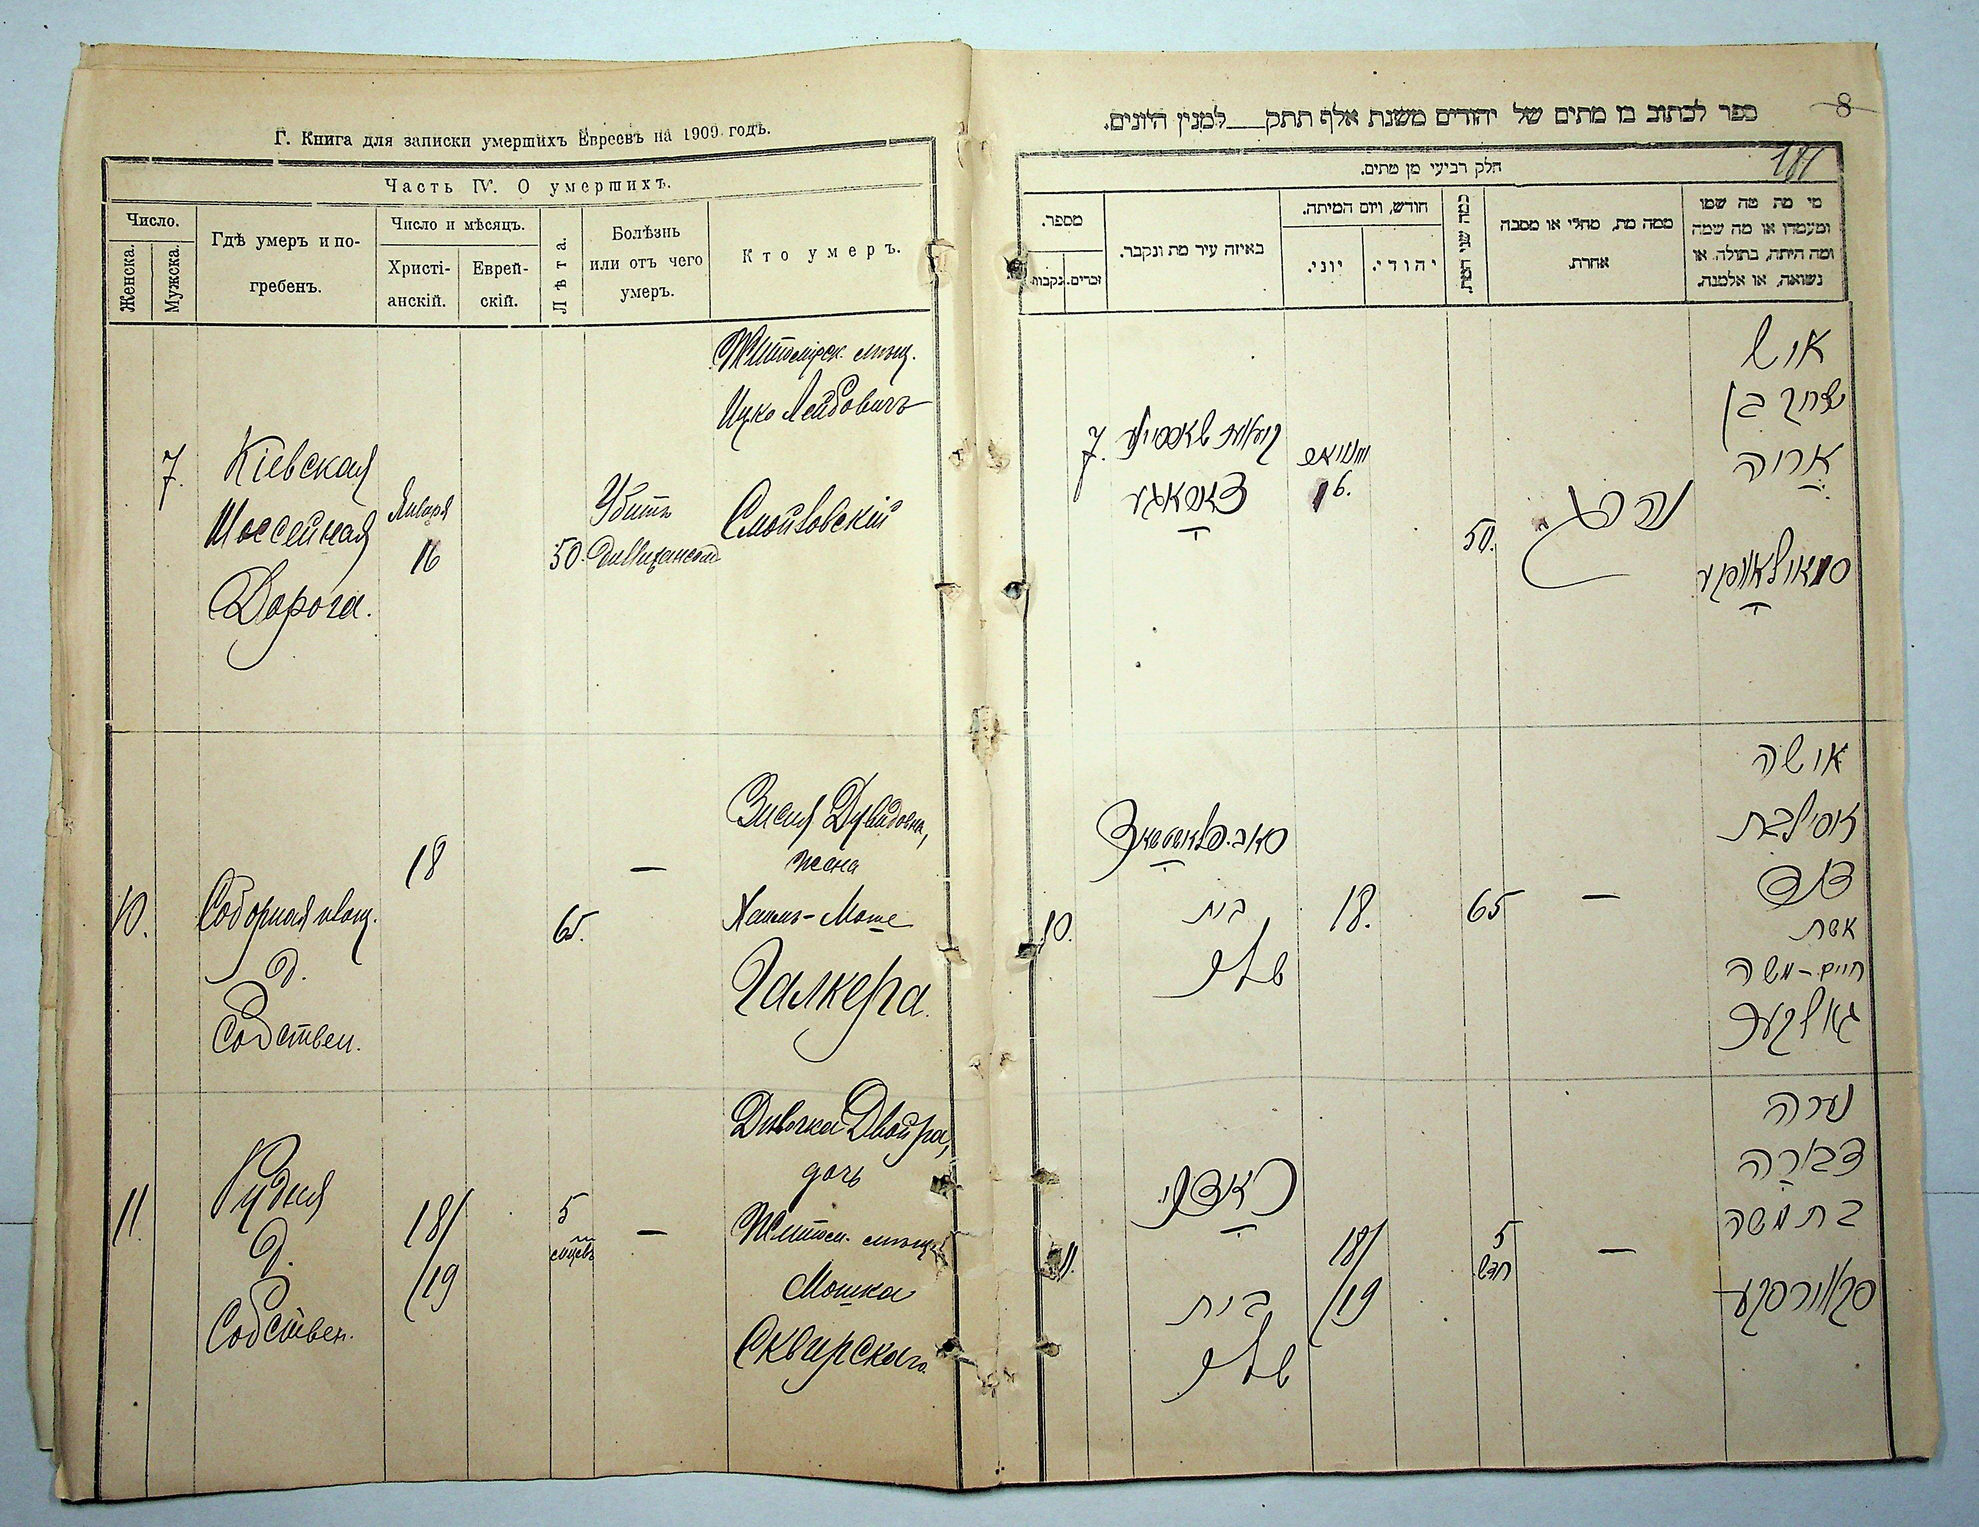 Г. Книга для записки умершихъ Евреевъ на 1909 годъ.
Часть IV. О умершихъ.
Число.
Женска.
Мужска.
Гдѣ умеръ и по-
гребенъ.
Число и мѣсяцъ.
Христі-
анскій.
Еврей-
скій.
Лѣта.
Болѣзнь
или отъ чего
умеръ.
Кто умеръ.
7.
Кіевская
Шоссейная
Дорога.
Января
16
50.
Убитъ
Житомірск. мѣщ.
Ицко Лейбовичъ
10.
Соборная площ.
д.
Собствен.
18
65.
—
Зисля Дувидовна,
жена
Хаимъ-Моше
Галкера.
11
Рудня
д.
Собствен.
18/
/19
5
мцевъ
—
Дѣвочка Двойра,
дочь
Житом. мѣщ.
Мошка
Сквирскаго.
8
ספר לכתוב בו מתים של יהודים משנת אלף תתק___למנין היונים.
181
חלק רביעי מן מתים.
מי מת מה שמו
ומעמדו או מה שמה
ומה היתה, בתולה או
נשואה, או אלמנה.
ממה מת, מחלי או מסבה
אחרת.
כמה שני המת.
חודש, ויום המיתה.
יהודי.
יוני.
באיזה עיר מת ונקבר.
מספר.
זכרים.
נקבות
איש
יצחק בן
אריה
נהרג
50.
יאנואר
16.
7.
אשה
זיסל בת
דוד
אשת
חיים-משה
גאלקער
—
65
18.
בית
שלו
10.
נערה
דבורה
בת משה
סקווירסקע
—
5
חדש
18/
/19
רודניa
בית
שלו
11.